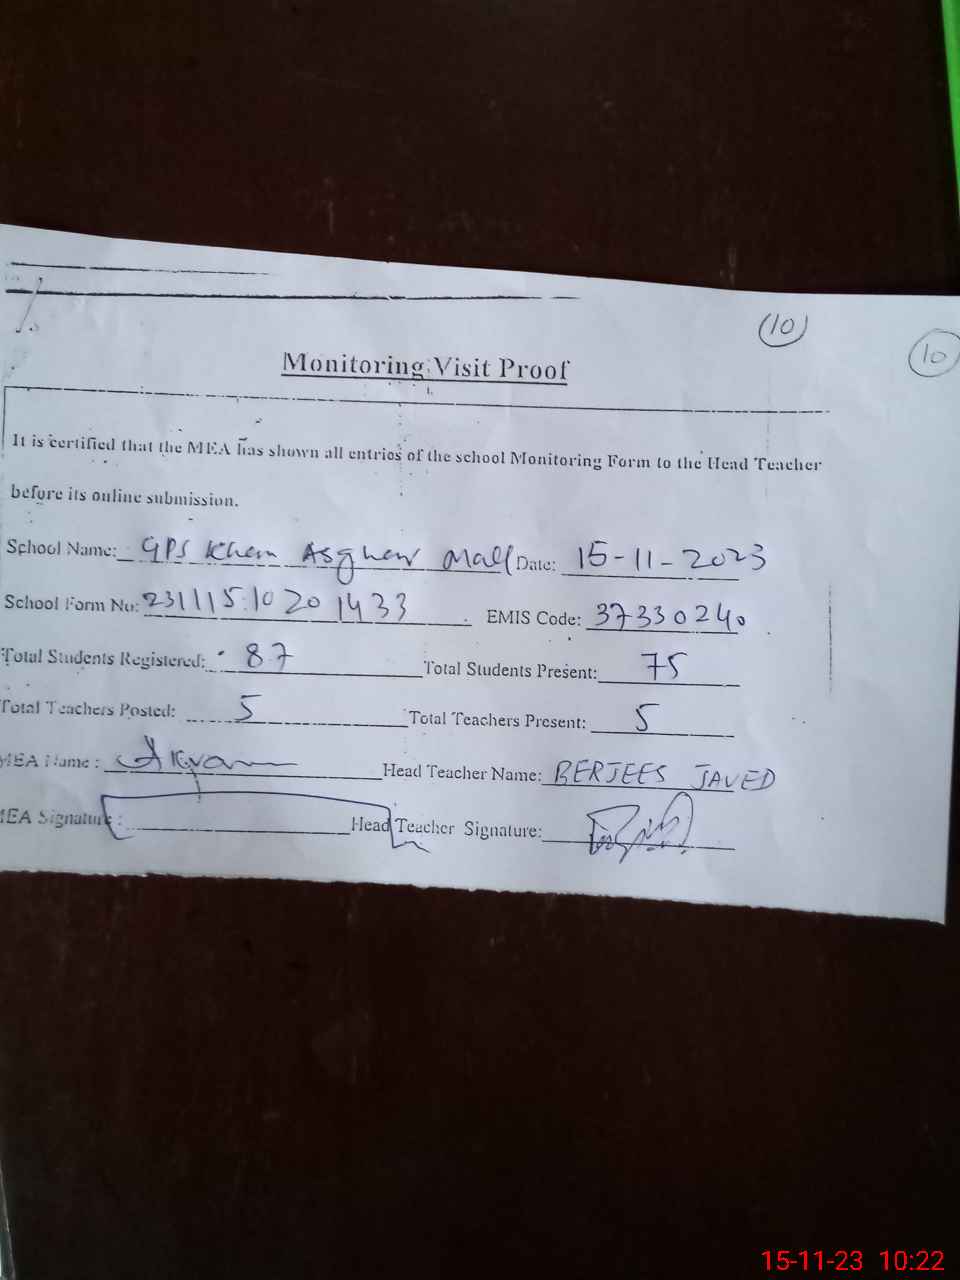 (10)
10
Monitoring Visit Proof
It is certified that the MEA has shown all entries of the school Monitoring Form to the Head Teacher
before its online submission.
School Name: GPS Khan Asghar Mall Date: 15-11-2023
School Form No: 231115102014 33 EMIS Code: 37330240
Total Students Registered: 87 Total Students Present: 75
Total Teachers Posted: 5 Total Teachers Present: 5
MEA Name: Akram Head Teacher Name: BERJEES JAVED
MEA Signature: Head Teacher Signature:
15-11-23 10:22